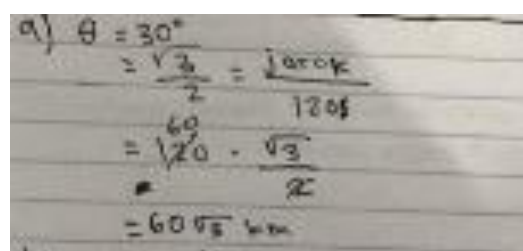 a) θ = 30°
= √3/2 = jarak/120
= 120 · √3/2
60
= 60√3 km